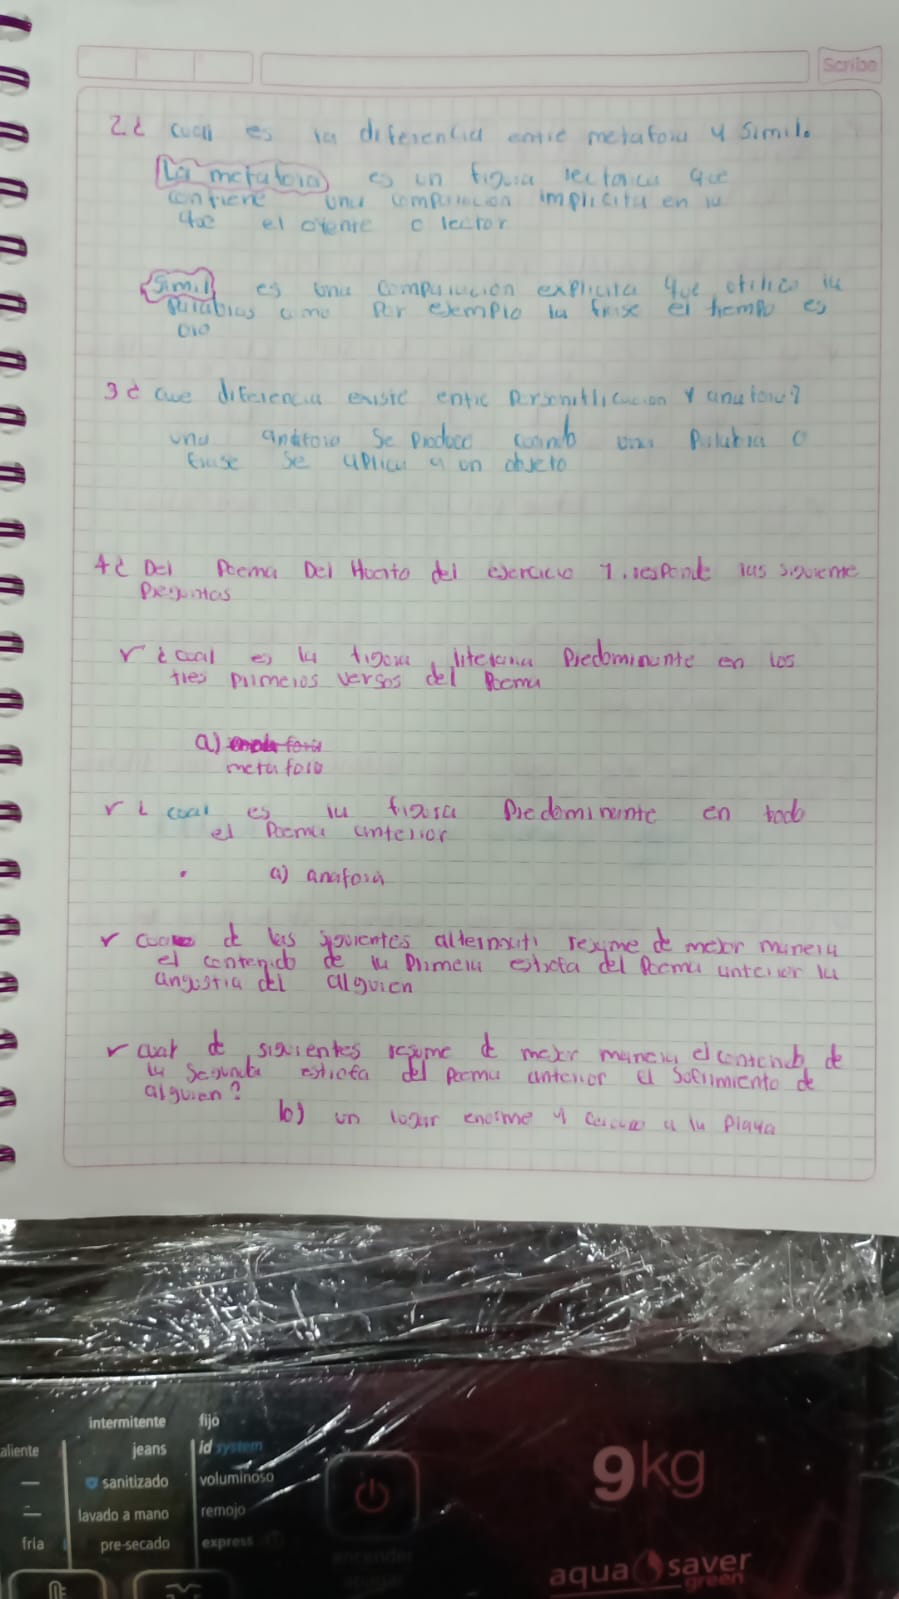 Scribe
2 ¿ cual es la diferencia entre metafora y simil.
La metafora es un figura rectorica que
contiene una comparacion implicita en la
que el oyente o lector
Simil es una comparacion explicita que utiliza la
palabras como por ejemplo la frase el tiempo es
oro
3 ¿ que diferencia existe entre personificacion y anafora?
una anafora se produce cuando una palabra o
frase se aplica a un objeto
4 ¿ Del Poema Del Huerto del ejercicio 1. responde las siguiente
preguntas
¿ cual es la figura literaria Predominante en los
tres primeros versos del Poema
a)
metafora
¿ cual es la figura Predominante en todo
el Poema anterior
a) anafora
de las siguientes resume de mejor manera
el contenido de la Primera estrofa del Poema anterior la
angustia del alguien
cual de siguientes resume de mejor manera el contenido de
la segunda estrofa del poema anterior el sufrimiento de
alguien?
b) un lugar enorme y cercano a la Playa
intermitente fijo
aliente jeans id system
sanitizado voluminoso
lavado a mano remojo
fría pre-secado express
9kg
encender
apagar
aqua saver
green